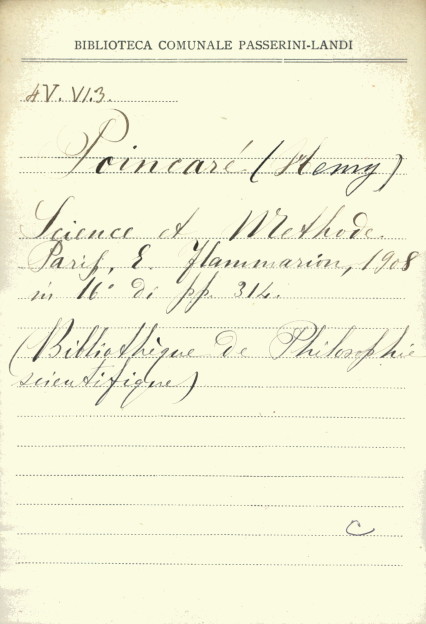 BIBLIOTECA COMUNALE PASSERINI-LANDI
4V. VI.3.
Poincaré (Henry)
Science et Methode.
Paris, E. Flammarion, 1908
in 16° di pp. 314.
(Bibliothèque de Philosophie
scientifique)
C